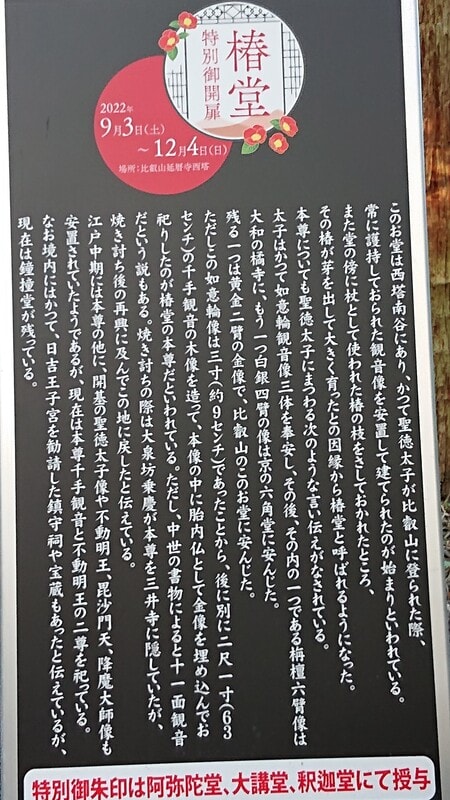 椿堂
特別御開扉
2022年
9月3日(土)
～12月4日(日)
場所:比叡山延暦寺西塔
このお堂は西塔南谷にあり、かつて聖徳太子が比叡山に登られた際、
常に護持しておられた観音像を安置して建てられたのが始まりといわれている。
また堂の傍に杖として使われた椿の枝をさしておかれたところ、
その椿が芽を出して大きく育ったとの因縁から椿堂と呼ばれるようになった。
本尊についても聖徳太子にまつわる次のような言い伝えがなされている。
太子はかつて如意輪観音像三体を奉安し、その後、その内の一つである栴檀六臂像は
大和の橘寺に、もう一つ白銀四臂の像は京の六角堂に安んじた。
残る一つは黄金二臂の金像で、比叡山のこのお堂に安んじた。
ただしこの如意輪像は三寸(約9センチ)であったことから、後に別に二尺一寸(63
センチ)の千手観音の木像を造って、本像の中に胎内仏として金像を埋め込んでお
祀りしたのが椿堂の本尊だといわれている。ただし、中世の書物によると十一面観音
だという説もある。焼き討ちの際は大泉坊乗慶が本尊を三井寺に隠していたが、
焼き討ち後の再興に及んでこの地に戻したと伝えている。
江戸中期には本尊の他に、開基の聖徳太子像や不動明王、毘沙門天、降魔大師像も
安置されていたようであるが、現在は本尊千手観音と不動明王の二尊を祀っている。
なお境内にはかつて、日吉王子宮を勧請した鎮守祠や宝蔵もあったと伝えているが、
現在は鐘撞堂が残っている。
特別御朱印は阿弥陀堂、大講堂、釈迦堂にて授与